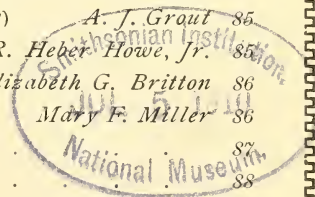 ?) A. J. Grout 85
R. Heber Howe, Jr. 85
lizabeth G. Britton 86
Mary F. Miller 86
. . . . . 87
. . . . . 88
Smithsonian Institution
JUL 5 1910
National Museum